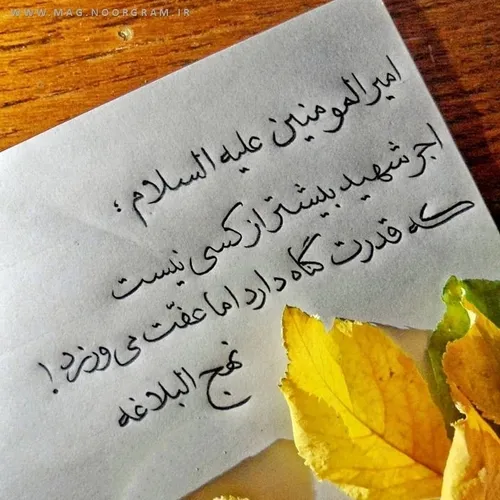 WWW.MAG.NOORGRAM.IR
امیرالمومنین علیه السلام :
اجر شهید بیشتر از کسی نیست
که قدرت گناه دارد اما عفّت می ورزد !
نهج البلاغه